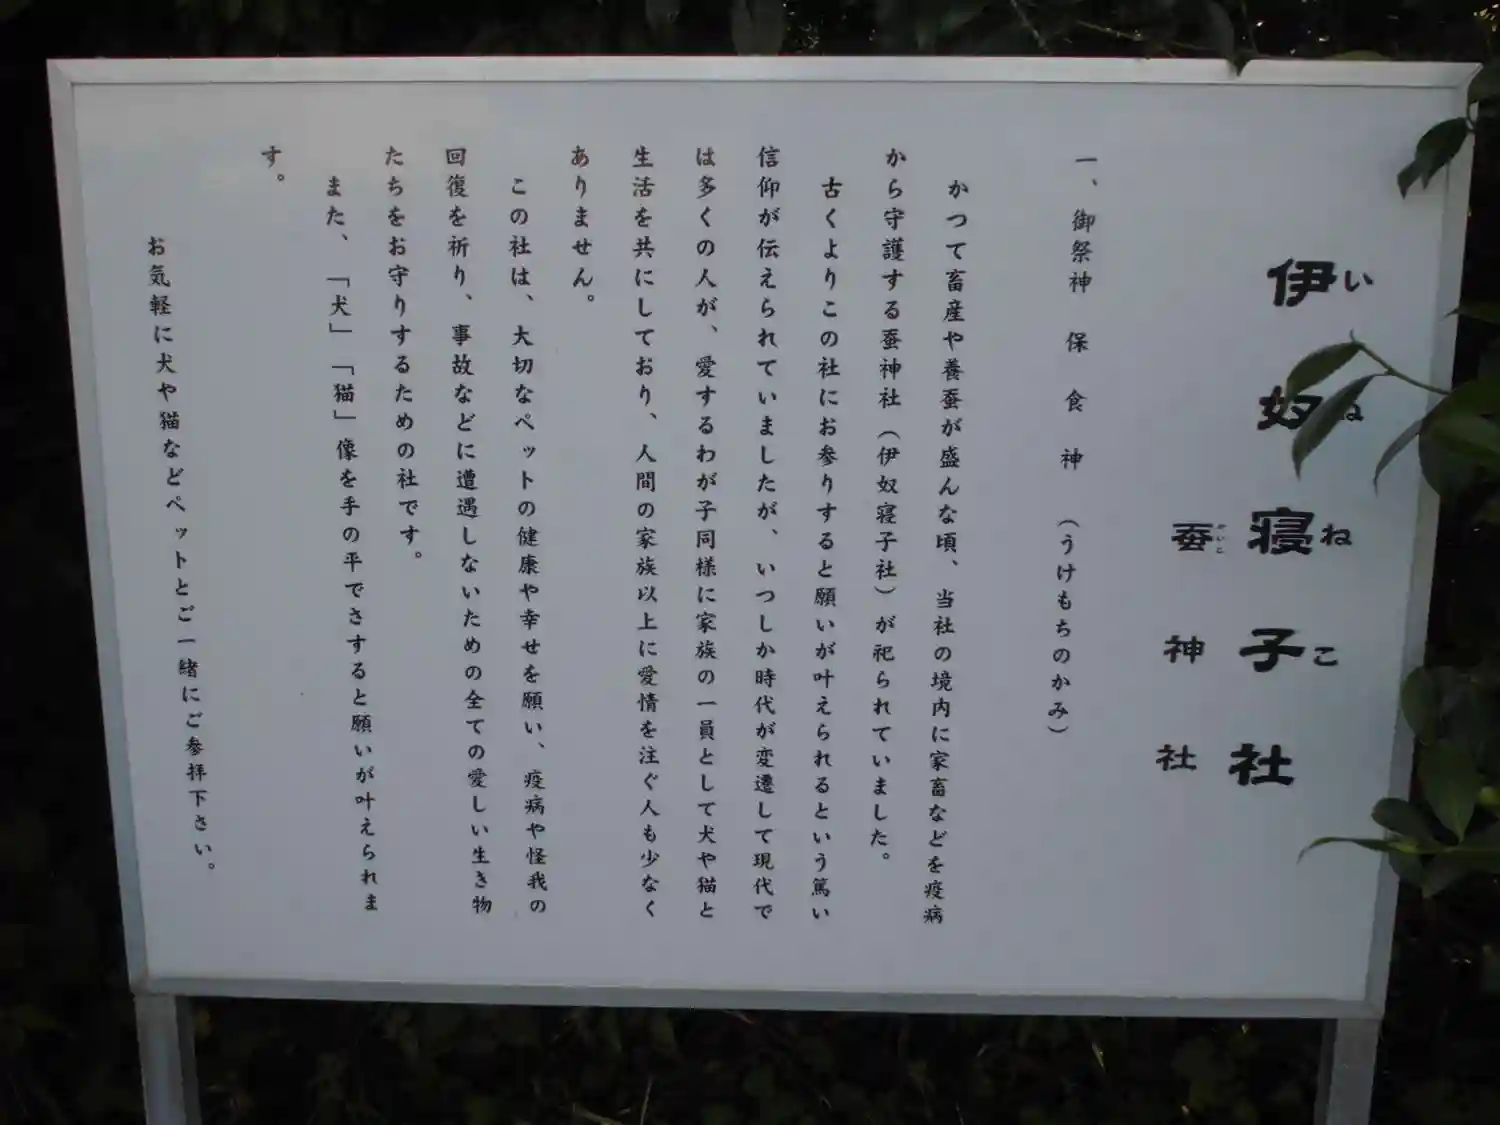 伊奴寝子社
いねねこ
蚕神社
かいこ
一、御祭神　保食神　（うけもちのかみ）
かつて畜産や養蚕が盛んな頃、当社の境内に家畜などを疫病
から守護する蚕神社（伊奴寝子社）が祀られていました。
古くよりこの社にお参りすると願いが叶えられるという篤い
信仰が伝えられていましたが、いつしか時代が変遷して現代で
は多くの人が、愛するわが子同様に家族の一員として犬や猫と
生活を共にしており、人間の家族以上に愛情を注ぐ人も少なく
ありません。
この社は、大切なペットの健康や幸せを願い、疫病や怪我の
回復を祈り、事故などに遭遇しないための全ての愛しい生き物
たちをお守りするための社です。
また、「犬」「猫」像を手の平でさすると願いが叶えられま
す。
お気軽に犬や猫などペットとご一緒にご参拝下さい。